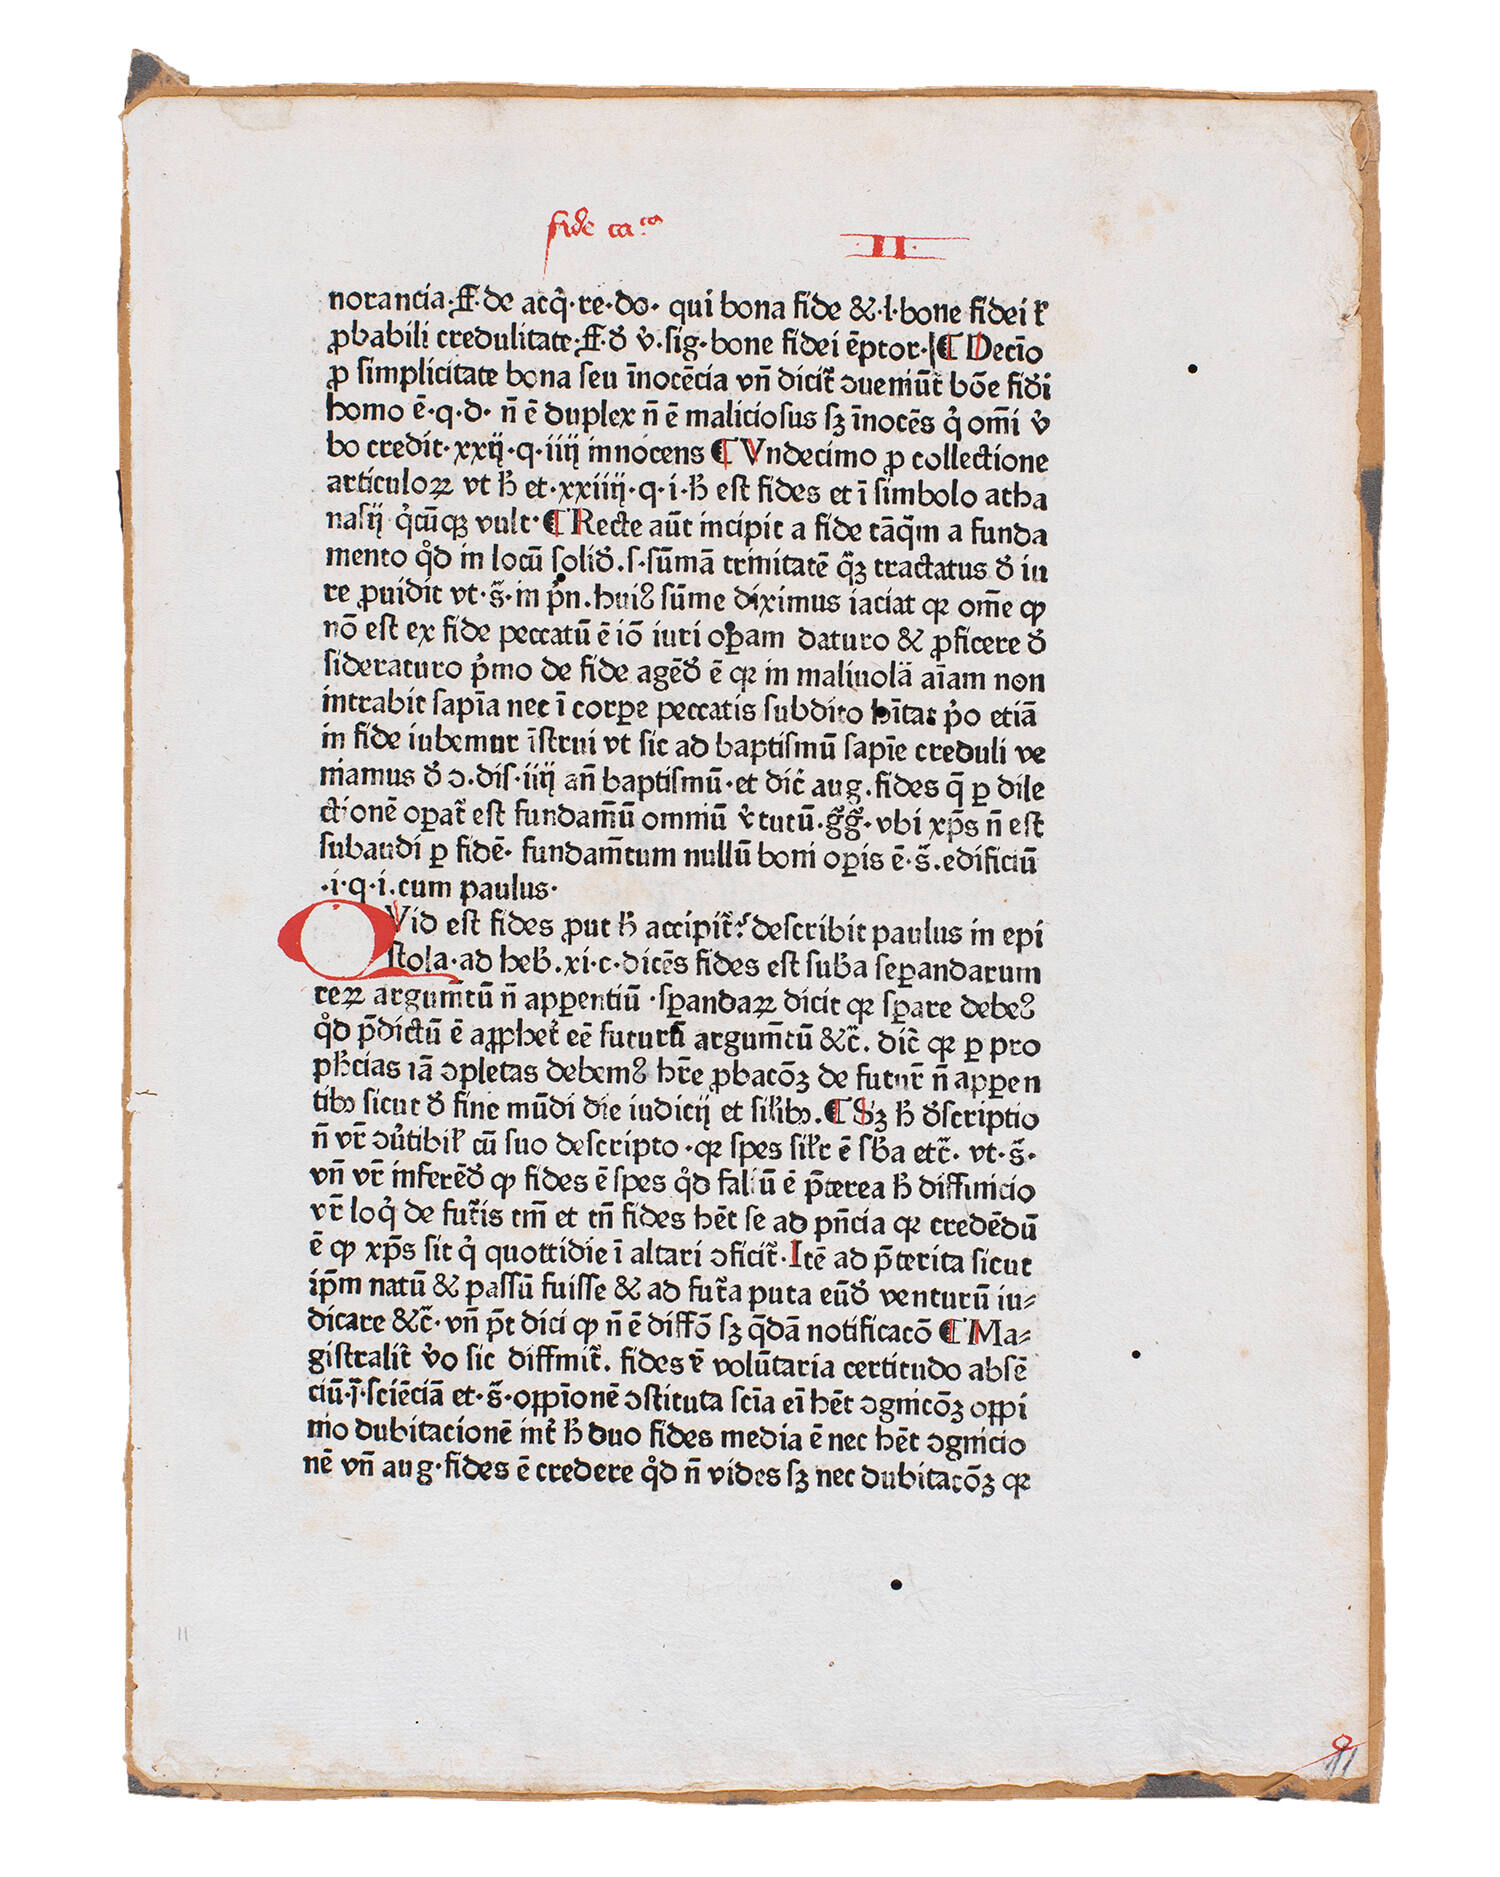 fide ca.ca
·II·
norancia·ff·de acq̇·re·do· qui bona fide &·l·bone fidei ł
ꝓbabili credulitate·ff·ð v̇·sig·bone fidei ēptor·|¶ Decīo
ꝓ simplicitate bona seu īnocēcia vn̄ dicit᷑ ɔueniūt᷑ bōe fiði
homo ē·q·d· n̄ ē duplex n̄ ē maliciosus sꝫ īnocēs q̇ om̄i v̇
bo credit·xxij·q·iiij innocens ¶ Vndecimo ꝓ collectione
articuloꝝ vt ħ et·xxiiij·q·i·ħ est fides et ī simbolo atha
nasij q̇cūqꝫ vult·¶ Recte aūt incipit a fide tāq̄m a funda
mento qd̊ in locū solið.s·sūmā trinitatē q̄ꝫ tractatus ð iu
re ꝓuidit vt·s̄·in pn̄.hui9 sūme diximus iaciat qꝛ om̄e ꝙ
nō est ex fide peccatū ē iō iuri oꝑam daturo & ꝓficere ð
sideraturo pͥmo de fide agēð ē qꝛ in maliuolā aīam non
intrabit sapīa nec ī corꝑe peccatis subdito hītat pͥo etiā
in fide iubemur īstrui vt sic ad baptismū sapīe creduli ve
niamus ð ɔ.dis·iiij an̄ baptismū·et dic̄ aug.fides q̄ ꝑ dile
ctionē oꝑat᷑ est fundam̄ū omniū v̇tutū·g̊g̊·vbi xp̄s n̄ est
subaudi ꝑ fidē· fundam̄tum nullū boni oꝑis ē·s̄.edificiū
·i·q·i.cum paulus·
QVid est fides ꝓut ħ accipit᷑? describit paulus in epi
stola·ad heb̄.xi·c·dicēs fides est sub̄a seꝑandarum
reꝝ argum̄tū n̄ apꝑentiū ·sꝑandaꝝ dicit qꝛ sꝑare debe9
qd̊ p̄dictū ē aꝓphet᷑ eē futurū argum̄tū &c̄. dic̄ qꝛ ꝑ pro
pħcias iā ɔpletas debem9 hr̄e ꝓbacōꝫ de futur̄ n̄ apꝑen
tibꝫ sicut ð fine mūdi die iudicij et sił̄ibꝫ.¶ Sꝫ ħ ðscriptio
n̄ vr̄ ɔu̇tibił cū suo descripto ·qꝛ spes sił̄r ē sb̄a etc̄· vt·s̄·
vn̄ vr̄ inferēð ꝙ fides ē spes qd̊ falsū ē p̄terea ħ diffinicio
vr̄ loq̇ de fut᷑is tm̄ et tn̄ fides hēt se ad pn̄cia qꝛ credēdū
ē ꝙ xp̄s sit q̇ quottidie ī altari ɔficit᷑·Itē ad p̄terita sicut
ip̄m natū & passū fuisse & ad fut᷑a puta eūð venturū iu⸗
dicare &c̄· vn̄ p̄t dici ꝙ n̄ ē diffō sꝫ q̄dā notificacō ¶ Ma⸗
gistralit᷑ v̇o sic diffinit᷑. fides ē volūtaria certitudo absē
ciū·ī·sciēciā et·s̄·oppīonē ɔstituta scīa eī hēt ɔgnicōꝫ oppi
nio dubitacionē int᷑ ħ duo fides media ē nec hēt ɔgnicio
nē vn̄ aug·fides ē credere qd̊ n̄ vides sꝫ nec dubitacōꝫ qꝛ
11
11